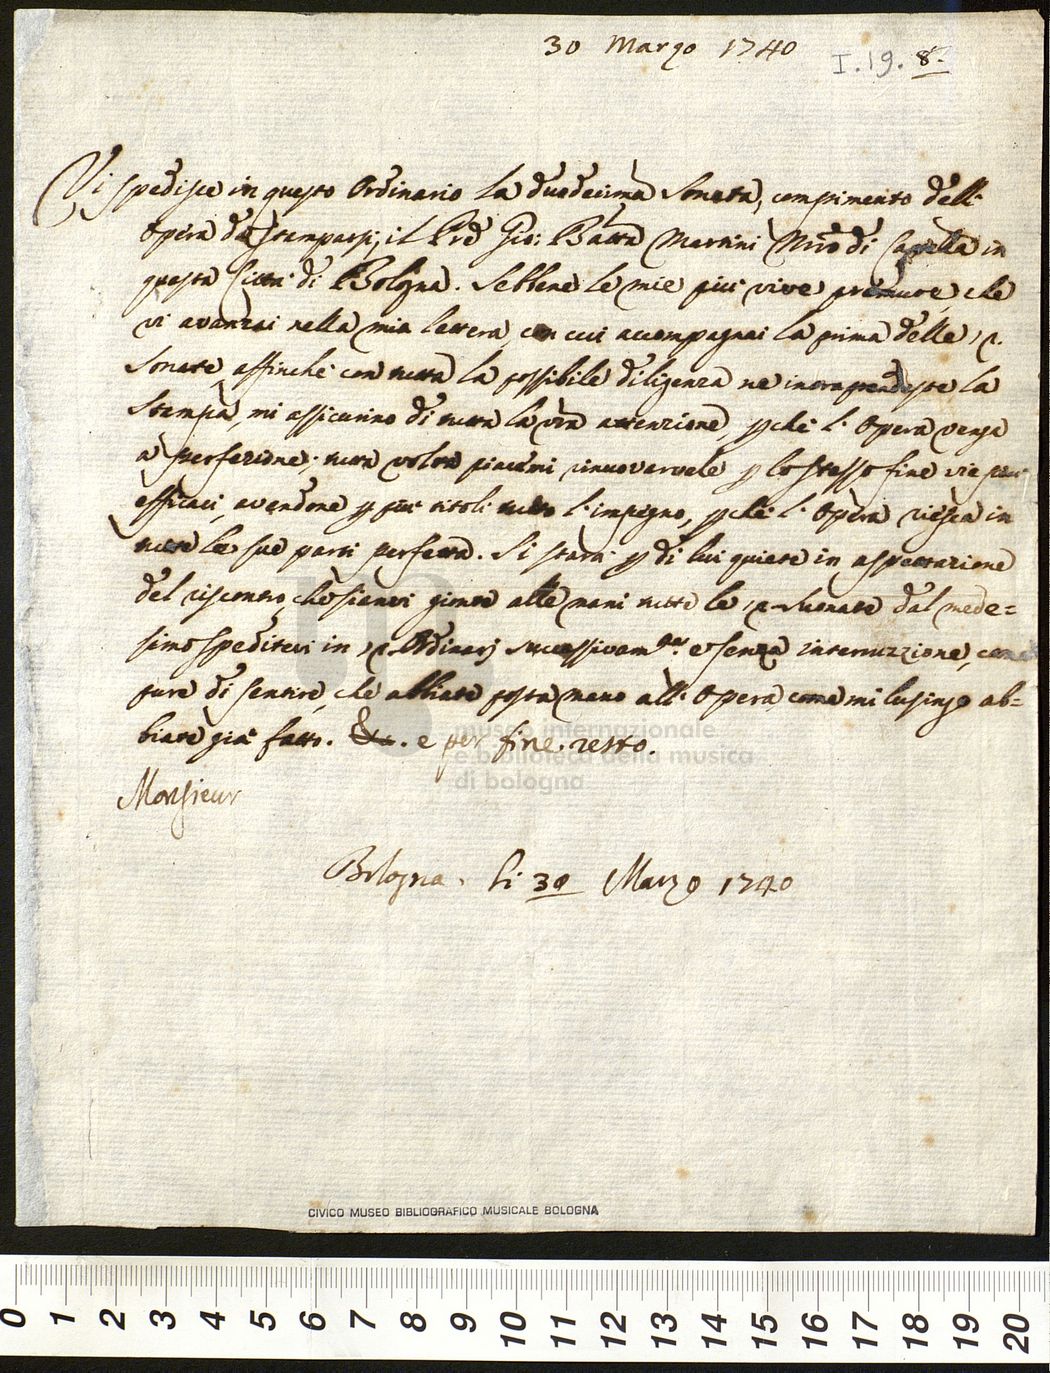 30 Marzo 1740
I.19.8.
Vi spedisce in questo Ordinario la duodecima Sonata, compimento dell'
Opera da Stamparsi, il Pre Gio: Batta Martini Mro di Capella in
questa Città di Bologna. Sebbene le mie più vive premure, che
vi avanzai nella mia lettera, con cui accompagnai la prima delle 12.
Sonate affinché con tutta la possibile diligenza ne intraprendeste la
Stampa, mi assicurino di tutta la vra attenzione, pché l'Opera venga
a perfezione; tutta volta piacemi rinuovarvele p lo stesso fine vie più
efficaci, avendone p più titoli tutto l'impegno, pché l'Opera riesca in
tutte le sue parti perfetta. Si starà p di lui quiete in aspettazione
del riscontro, che sianvi giunte alle mani tutte le 12 Suonate dal mede=
simo speditevi in 12 Ordinarj successivamte. e senza interruzzione, come
pure di sentire, che abbiate posta mano all'Opera come mi lusingo ab=
biate già fatto. &c. e per fine resto.
Monsieur
Bologna. li 30 Marzo 1740
museo internazionale
e biblioteca della musica
di bologna
CIVICO MUSEO BIBLIOGRAFICO MUSICALE BOLOGNA
0 1 2 3 4 5 6 7 8 9 10 11 12 13 14 15 16 17 18 19 20